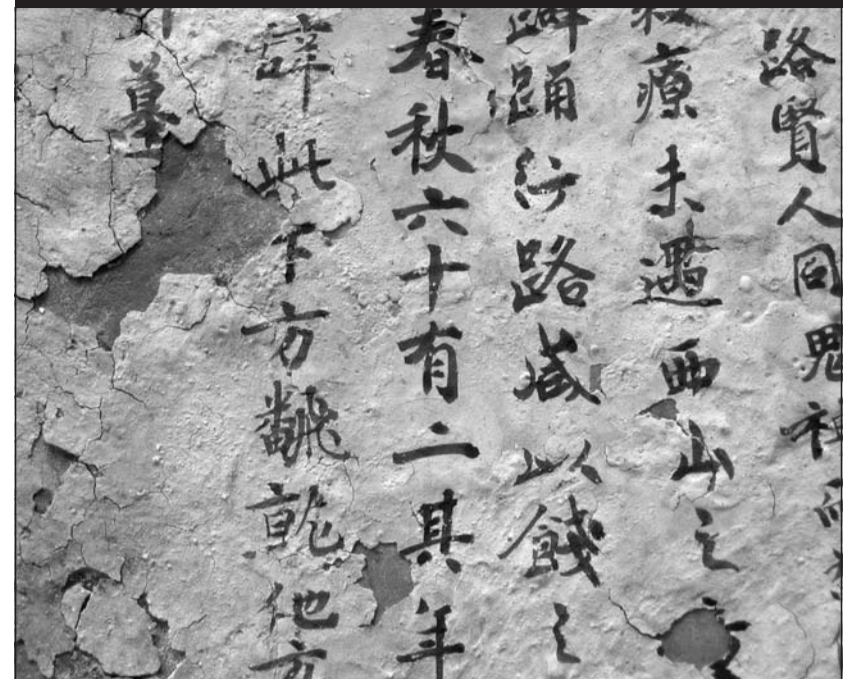 路賢人同鬼神而
療未遇西山之
踊行路咸以餞之
春秋六十有二其年
辭此下方飜就他方
墓